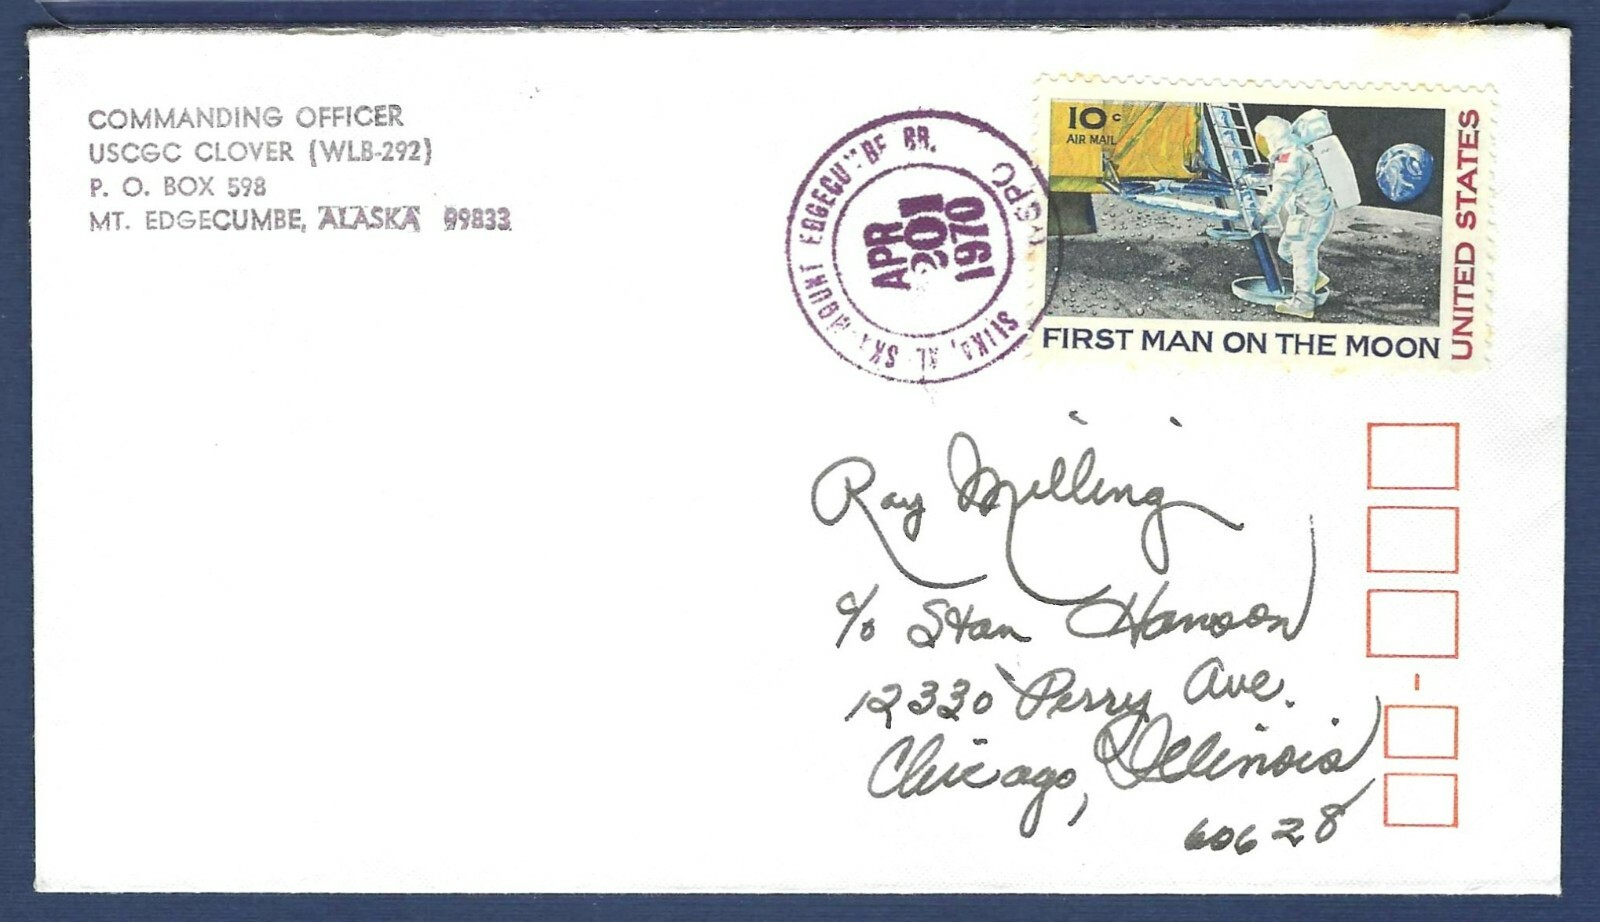 COMMANDING OFFICER
USCGC CLOVER (WLB-292)
P. O. BOX 598
MT. EDGECUMBE, ALASKA 99833
MOUNT EDGECUMBE BR.
SITKA, ALASKA
USPO
APR
20
1970
10c
AIR MAIL
UNITED STATES
FIRST MAN ON THE MOON
Ray Milling
c/o Stan Hanson
12330 Perry Ave.
Chicago, Illinois
60628